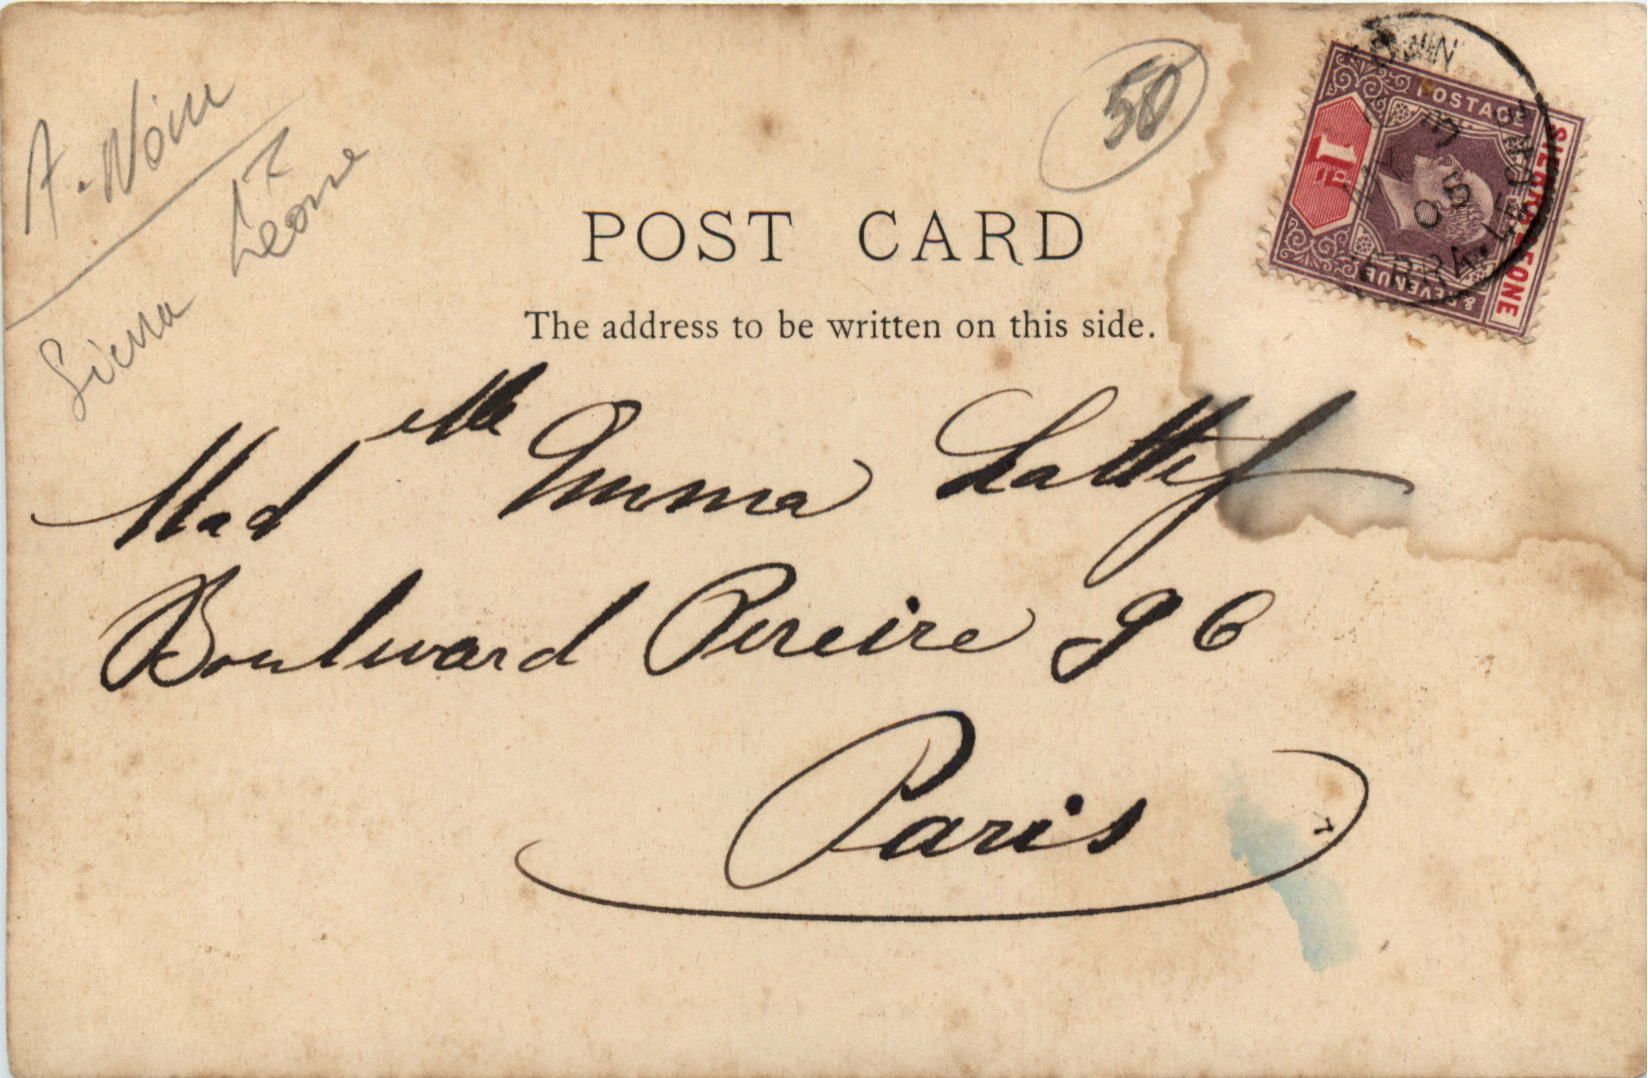 A. Noire
Sierra
Léone
50
POST CARD
The address to be written on this side.
POSTAGE
& REVENUE
SIERRA LEONE
1d
05
Madelle Emma Lattif
Boulevard Pereire 96
Paris